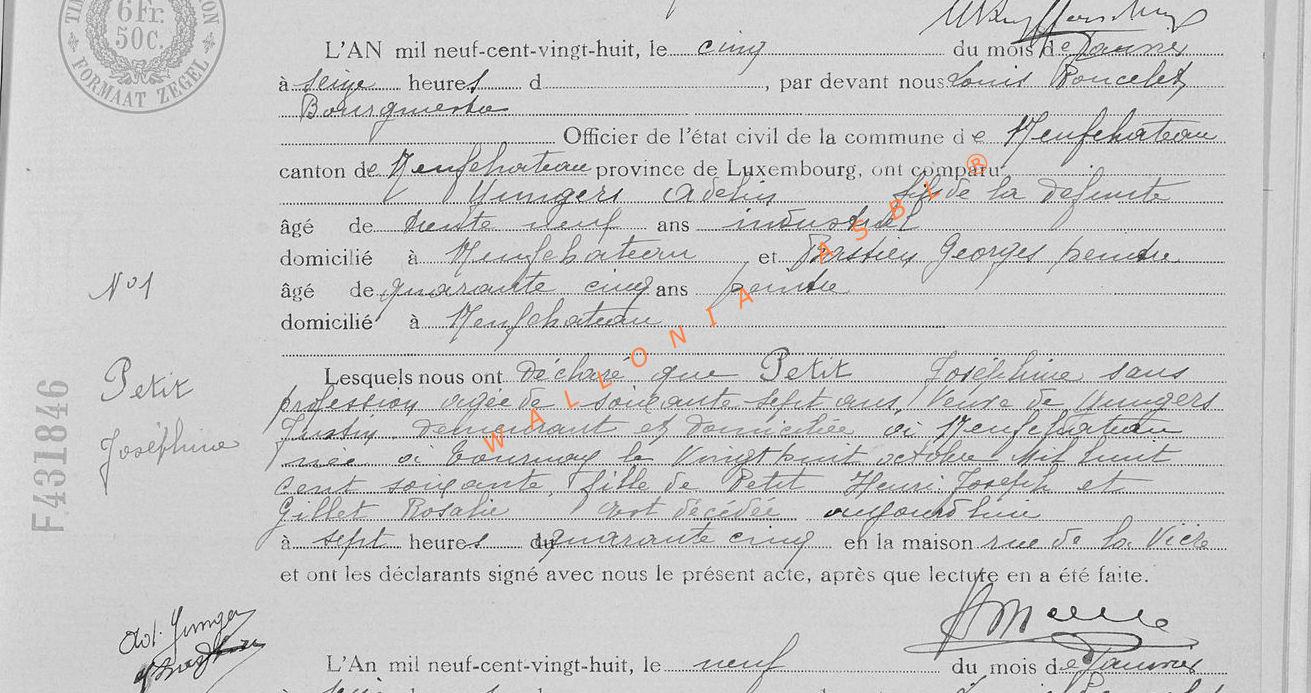 6Fr.
50c.
FORMAAT ZEGEL
L'AN mil neuf-cent-vingt-huit, le cinq du mois de Janvier
à seize heures d , par devant nous Louis Poncelet
Bourgmestre
Officier de l'état civil de la commune de Neufchateau
canton de Neufchateau province de Luxembourg, ont comparu
Adelin fils de la défunte
âgé de trente neuf ans industriel
domicilié à Neufchateau et Georges peintre
âgé de quarante cinq ans peintre
domicilié à Neufchateau
Lesquels nous ont déclaré que Petit Joséphine sans
profession agée de soixante sept ans, Veuve de
Justin demeurant et domiciliée à Neufchateau
née à Tournay le vingt huit octobre Mil huit
cent soixante, fille de Petit Henri Joseph et
Gillet Rosalie est décédée aujourd'hui
à sept heures quarante cinq en la maison rue de la
et ont les déclarants signé avec nous le présent acte, après que lecture en a été faite.
L'An mil neuf-cent-vingt-huit, le neuf du mois de Janvier
No 1
Petit
Joséphine
F431846
WALLONIA ASBL ®